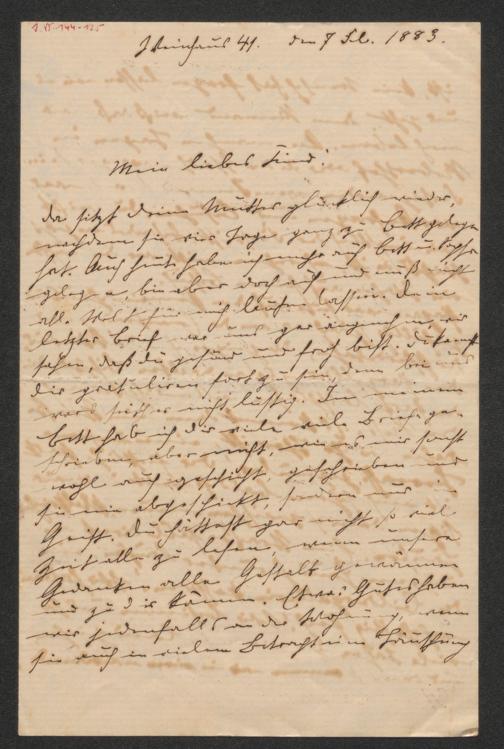 1.15-144-125
Weinhaus 41. den 7 Feb. 1883.
Mein liebes Kind!
da sitzt deine Mutter glücklich wieder,
nachdem sie vier Tage ganz z. Bett gelegen
hat. Auch heute habe ich mehr auf Bett u. Sopha
gelegen, bin aber doch auf und muß nicht
all. Welt für mich laufen lassen. Dein
letzter Brief war uns gar angenehm, wir
sehen, daß du gesund und froh bist. Du kannst
dir gratuliren fort zu sein, denn bei uns
sieht es nicht lustig. In meinem
Bett hab ich dir viele viele Briefe ge-
schrieben, aber nicht, wie es mir sonst
wohl auch geschieht, geschrieben und
sie nie abgeschickt, sondern nur im
Geist. Du hättest gar nicht so viel
Zeit alle zu lesen, wenn unsere
Gedanken alle Gestalt gewännen
und zu dir kämen. Etwas Gutes haben
wir jedenfalls an der Wohnung, wenn
sie auch in vielem Betracht eine Täuschung